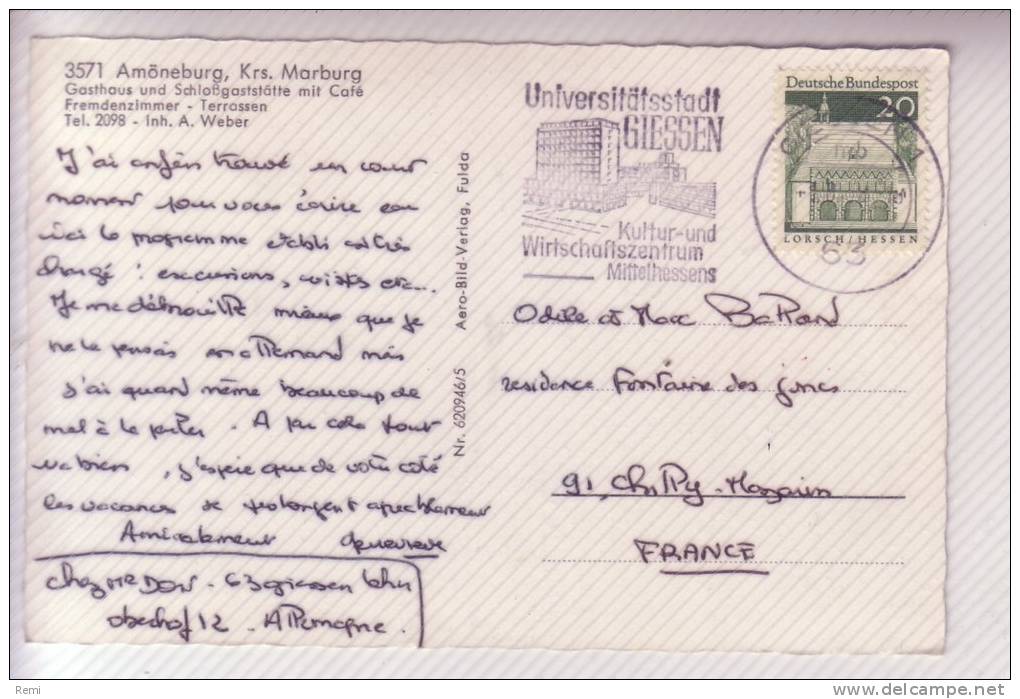 3571 Amöneburg, Krs. Marburg
Gasthaus und Schloßgaststätte mit Café
Fremdenzimmer - Terrassen
Tel. 2098 - Inh. A. Weber
J'ai enfin trouvé un court
moment pour vous écrire car
ici le programme établi est très
chargé : excursions, visites etc...
Je me débrouille mieux que je
ne le pensais en allemand mais
j'ai quand même beaucoup de
mal à le parler. A part cela tout
va bien, j'espère que de votre côté
les vacances se prolongent agréablement
Amicalement Geneviève
chez MR DOW - 63 giessen
12 - Allemagne.
Nr. 620946/5 Aero-Bild-Verlag, Fulda
Universitätsstadt
GIESSEN
Kultur-und
Wirtschaftszentrum
Mittelhessens
Deutsche Bundespost
20
LORSCH/HESSEN
63
Odile et Marc
residence Fontaine des joncs
91, Chilly-Mazarin
FRANCE
Remi